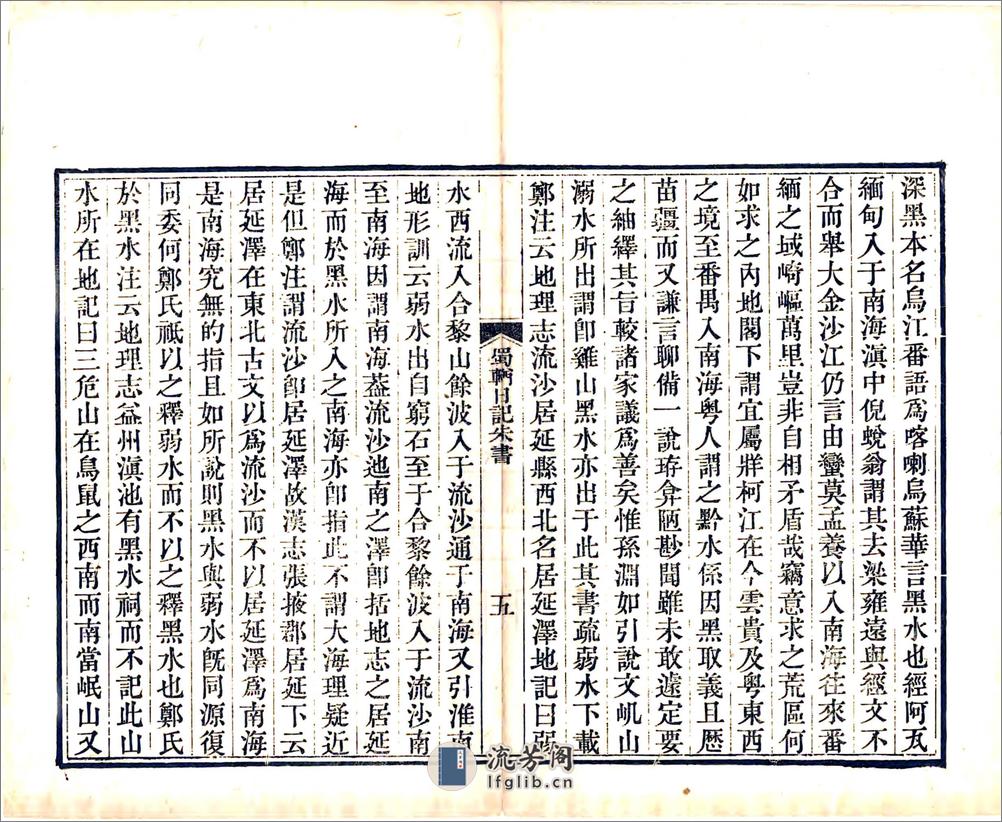 深黑本名烏江番語爲喀喇烏蘇華言黑水也經阿瓦
緬甸入于南海滇中倪蛻翁謂其去梁雍遠與經文不
合而舉大金沙江仍言由蠻莫孟養以入南海往來番
緬之域崎嶇萬里豈非自相矛盾哉竊意求之荒區何
如求之內地閣下謂宜屬牂柯江在今雲貴及粵東西
之境至番禺入南海粵人謂之黔水係因黑取義且歷
苗疆而又謙言聊備一說琦弇陋尠聞雖未敢遽定要
之紬繹其旨較諸家議爲善矣惟孫淵如引說文屼山
溺水所出謂卽雞山黑水亦出于此其書疏弱水下載
鄭注云地理志流沙居延縣西北名居延澤地記曰弱
蜀輶日記朱書
五
水西流入合黎山餘波入于流沙通于南海又引淮南
地形訓云弱水出自窮石至于合黎餘波入于流沙南
至南海因謂南海葢流沙迆南之澤卽括地志之居延
海而於黑水所入之南海亦卽指此不謂大海理疑近
是但鄭注謂流沙卽居延澤故漢志張掖郡居延下云
居延澤在東北古文以爲流沙而不以居延澤爲南海
是南海究無的指且如所說則黑水與弱水旣同源復
同委何鄭氏祇以之釋弱水而不以之釋黑水也鄭氏
於黑水注云地理志益州滇池有黑水祠而不記此山
水所在地記曰三危山在鳥鼠之西南而南當岷山又
流芳阁
lfglib.cn